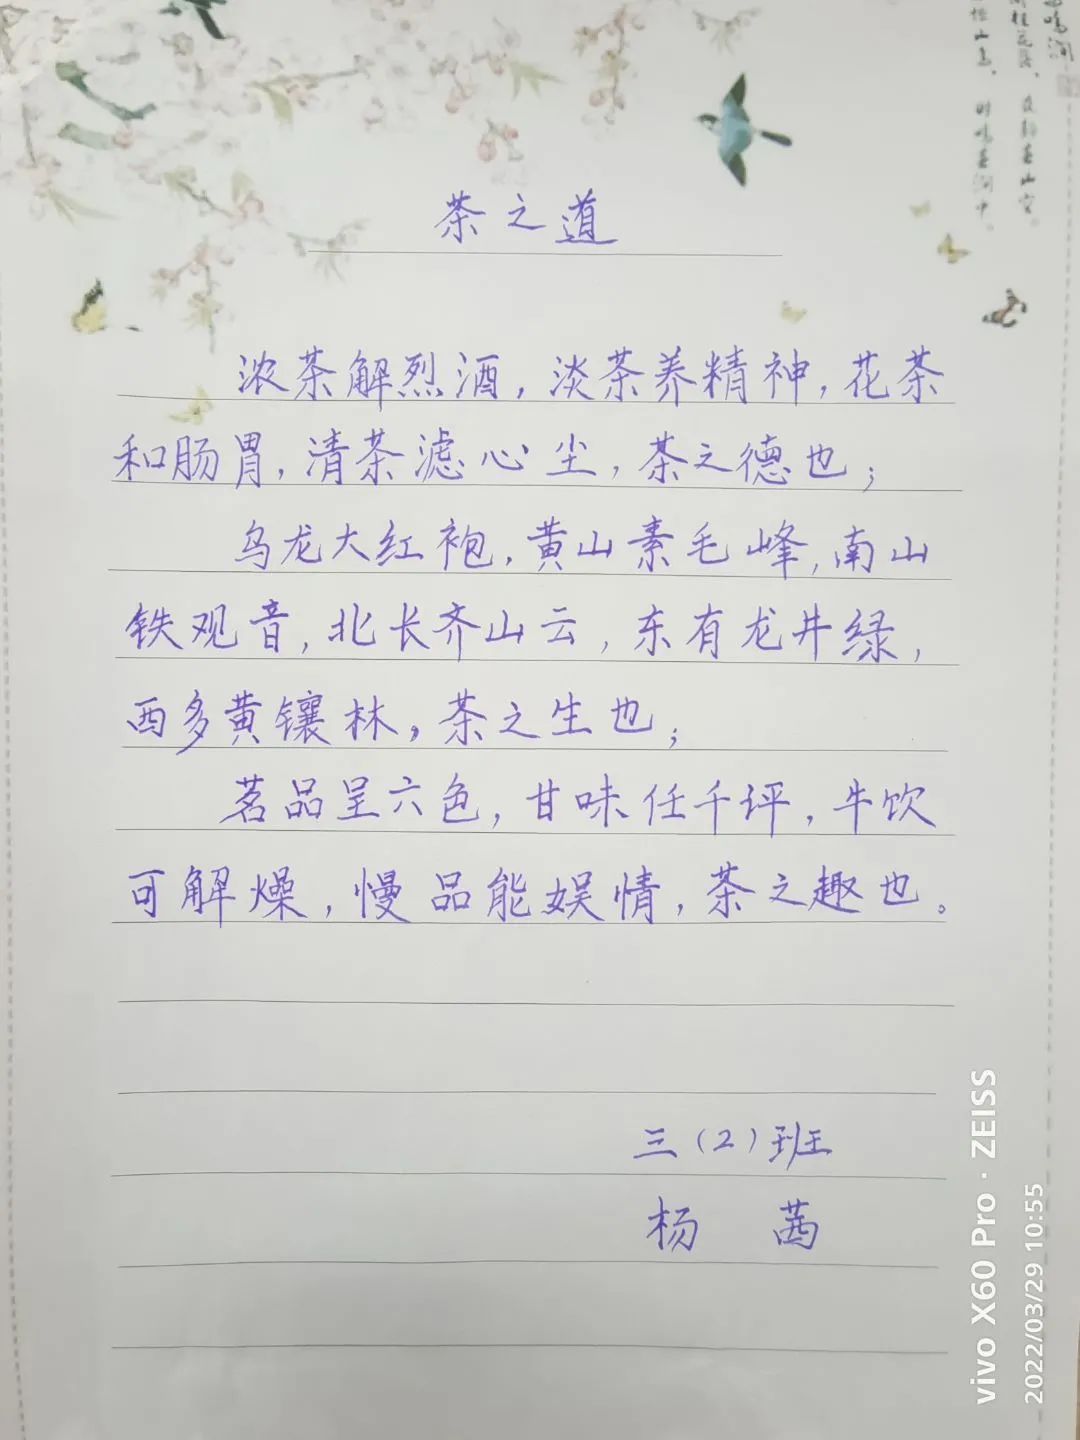 茶之道
浓茶解烈酒，淡茶养精神，花茶
和肠胃，清茶滤心尘，茶之德也；
乌龙大红袍，黄山素毛峰，南山
铁观音，北长齐山云，东有龙井绿，
西多黄镶林，茶之生也；
茗品呈六色，甘味任千评，牛饮
可解燥，慢品能娱情，茶之趣也。
三（2）班
杨 茜
vivo X60 Pro · ZEISS
2022/03/29 10:55